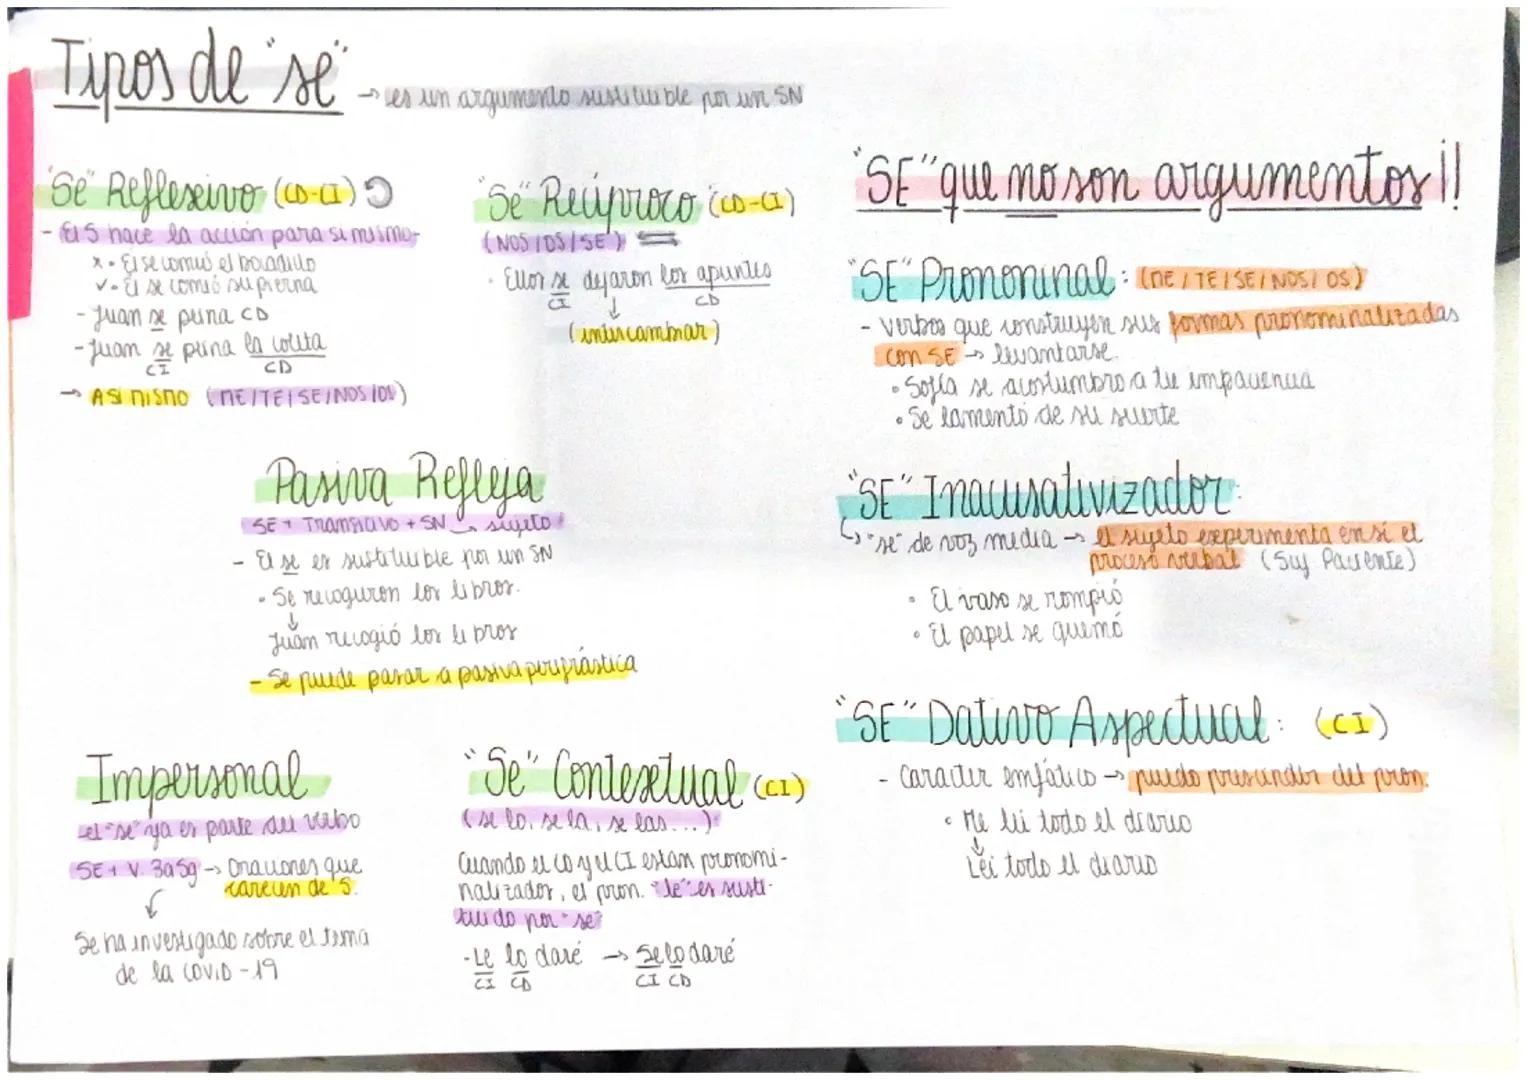 Tipos de "se" → es un argumento sustituible por un SN
"Se" Reflexivo (CD-CI)
- El S hace la acción para si mismo-
x • El se comió el bocadillo
v • El se comió su pierna
- Juan se peina CD
- Juan se peina la colita
CI CD
→ A SI MISMO (ME/TE/SE/NOS/OS)
"Se" Recíproco (CD-CI)
(NOS/OS/SE)
• Ellos se dejaron los apuntes
CI CD
↓
(intercambiar)
Pasiva Refleja
SE + Transitivo + SN → sujeto
- El se es sustituible por un SN
• Se recogieron los libros.
↓
Juan recogió los libros
- Se puede pasar a pasiva perifrástica
Impersonal
el "se" ya es parte del verbo
SE + V. 3a Sg → Oraciones que
carecen de S.
Se ha investigado sobre el tema
de la COVID-19
"Se" Contextual (CI)
(se lo, se la, se las...)
Cuando el CD y el CI estan pronomi-
nalizados, el pron. "le" es susti-
tuido por "se"
- Le lo daré → Se lo daré
CI CD CI CD
"SE" que no son argumentos ¡!
"SE" Prononinal: (ME/TE/SE/NOS/OS)
- Verbos que construyen sus formas pronominalizadas
con SE → levantarse.
• Sofía se acostumbro a tu impaciencia
• Se lamentó de su suerte
"SE" Inacusativizador:
↳ "se" de voz media → el sujeto experimenta en sí el
proceso verbal (Suj Paciente)
• El vaso se rompió
• El papel se quemó
"SE" Dativo Aspectual: (CI)
- Caracter enfático → puedo prescindir del pron.
• Me leí todo el diario
↓
Leí todo el diario